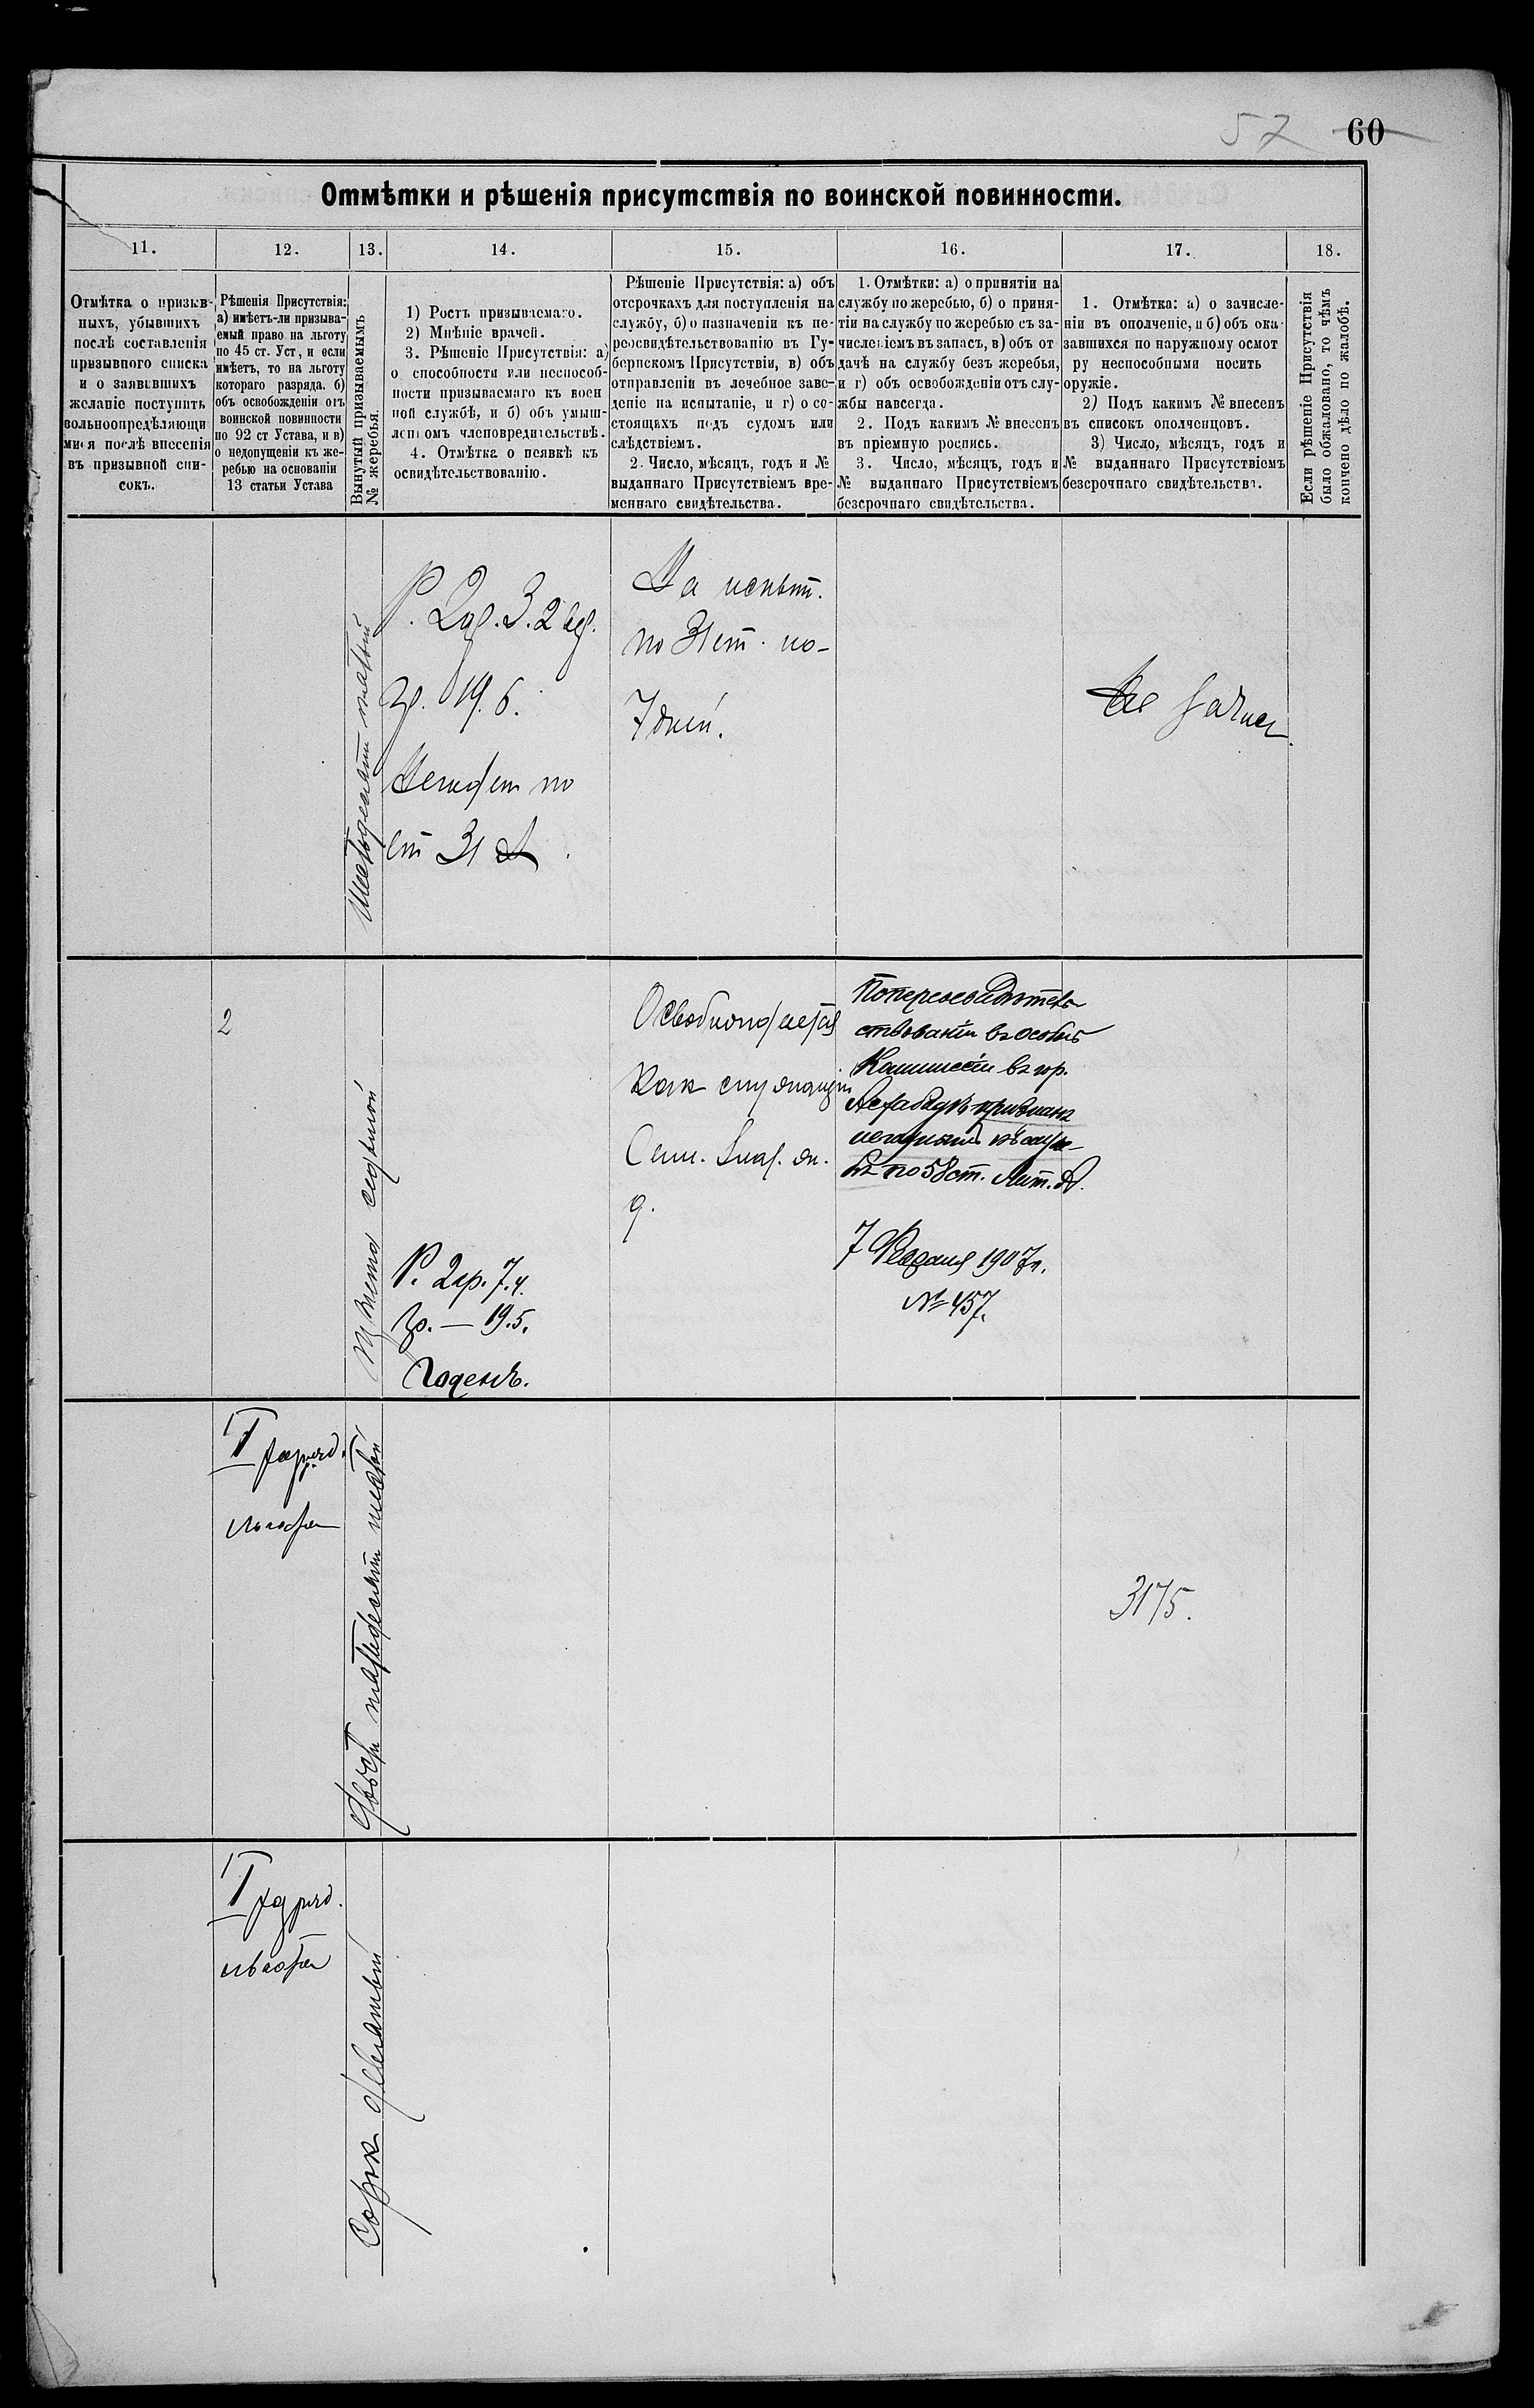 57 60
Отмѣтки и рѣшенія присутствія по воинской повинности.
11. 12. 13. 14. 15. 16. 17. 18.
Отмѣтка о призыв-
ныхъ, убывшихъ
послѣ составленія
призывного списка
и о заявившихъ
желаніе поступить
вольноопредѣляющи
мися послѣ внесенія
въ призывной спи-
сокъ.
Рѣшенія Присутствія:
а) имѣетъ-ли призыва-
емый право на льготу
по 45 ст. Уст, и если
имѣетъ, то на льготу
котораго разряда. б)
объ освобожденіи отъ
воинской повинности
по 92 ст Устава, и в)
о недопущеніи къ же-
ребью на основаніи
13 статьи Устава
Вынутый призываемымъ
№ жеребья.
1) Ростъ призываемаго.
2) Мнѣніе врачей.
3. Рѣшеніе Присутствія: а)
о способности или неспособ-
ности призываемаго къ воен
ной службѣ, и б) объ умыш-
ленномъ членовредительствѣ.
4. Отмѣтка о неявкѣ къ
освидѣтельствованію.
Рѣшеніе Присутствія: а) объ
отсрочкахъ для поступленія на
службу, б) о назначеніи къ пе-
реосвидѣтельствованію въ Гу-
бернскомъ Присутствіи, в) объ
отправленіи въ лечебное заве-
деніе на испытаніе, и г) о со-
стоящихъ подъ судомъ или
слѣдствіемъ.
2. Число, мѣсяцъ, годъ и №
выданнаго Присутствіемъ вре-
меннаго свидѣтельства.
1. Отмѣтки: а) о принятіи на
службу по жеребью, б) о приня-
тіи на службу по жеребью съ за-
численіемъ въ запасъ, в) объ от
дачѣ на службу безъ жеребья,
и г) объ освобожденіи отъ слу-
жбы навсегда.
2. Подъ какимъ № внесенъ
въ пріемную роспись.
3. Число, мѣсяцъ, годъ и
№ выданнаго Присутствіемъ
безсрочнаго свидѣтельства.
1. Отмѣтка: а) о зачисле-
ніи въ ополченіе, и б) объ ока
завшихся по наружному осмот
ру неспособными носить
оружіе.
2) Подъ какимъ № внесенъ
въ списокъ ополченцовъ.
3) Число, мѣсяцъ, годъ и
№ выданнаго Присутствіемъ
безсрочнаго свидѣтельства.
Если рѣшеніе Присутствія
было обжаловано, то чѣмъ
кончено дѣло по жалобѣ.
Шестьдесят пятый
Р. 2 3. 2
19. 6.
по
ст 31
На испыт.
по 31 ст. на
7 дней.
Не
2
седьмой
Р. 2 ар. 7. 4.
19. 5.
Годенъ.
Освобождается
как служащій
Сем.
По переосвидѣтель
ствованіи въ особой
Коммиссіи въ гор.
Асхабадѣ признанъ
негоднымъ къ служ-
бѣ по 58 ст. Лит. А.
7 Февраля 1907 г.
№ 457.
I разряд.
льгота
Двѣсти пятьдесят шестой
3175.
I разряд.
льгота
Сорок девятый